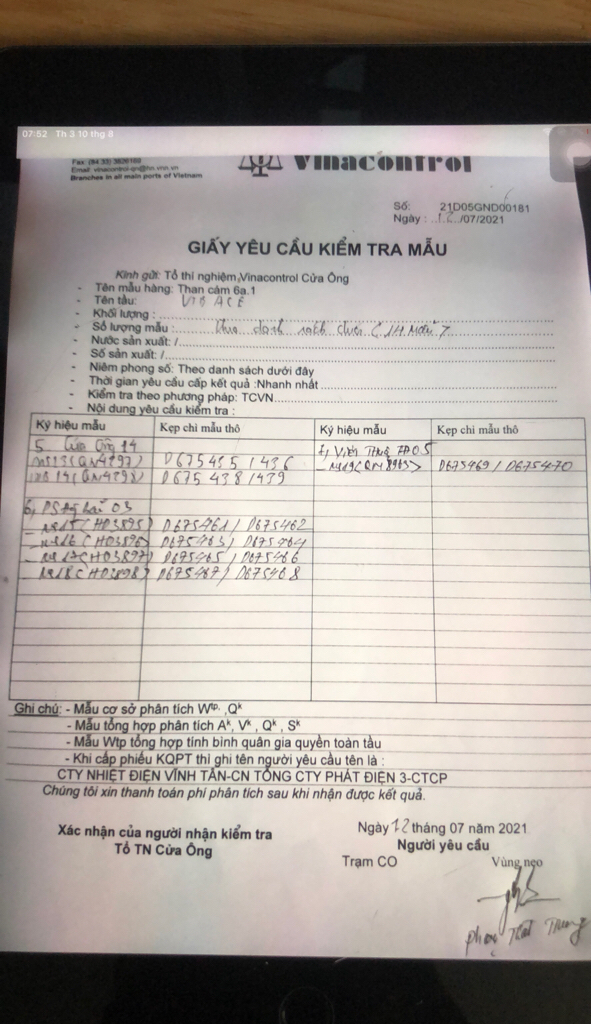 07:52 Th 3 10 thg 8
Fax: (84.33) 3826169
Email: vinacontrol-qn@hn.vnn.vn
Branches in all main ports of Vietnam
vinacontrol
Số: 21D05GND00181
Ngày : ..12../07/2021
GIẤY YÊU CẦU KIỂM TRA MẪU
Kính gửi: Tổ thí nghiệm Vinacontrol Cửa Ông
- Tên mẫu hàng: Than cám 6a.1
- Tên tầu: ACE
- Khối lượng :
- Số lượng mẫu : danh sách dưới
- Nước sản xuất: /
- Số sản xuất: /
- Niêm phong số: Theo danh sách dưới đây
- Thời gian yêu cầu cấp kết quả :Nhanh nhất
- Kiểm tra theo phương pháp: TCVN
- Nội dung yêu cầu kiểm tra :
Ký hiệu mẫu Kẹp chì mẫu thô Ký hiệu mẫu Kẹp chì mẫu thô
5 Cửa Ông 14
(QN4297) D675435/436 D675469/D675470
(QN4298) D675438/439
03
(HD3895) D675461/D675462
(HD3896) D675463/D675464
(HD3897) D675465/D675466
(HD3898) D675467/D675468
Ghi chú: - Mẫu cơ sở phân tích Wtp, Qk
- Mẫu tổng hợp phân tích Ak, Vk, Qk, Sk
- Mẫu Wtp tổng hợp tính bình quân gia quyền toàn tầu
- Khi cấp phiếu KQPT thì ghi tên người yêu cầu tên là :
CTY NHIỆT ĐIỆN VĨNH TÂN-CN TỔNG CTY PHÁT ĐIỆN 3-CTCP
Chúng tôi xin thanh toán phí phân tích sau khi nhận được kết quả.
Ngày 12 tháng 07 năm 2021
Xác nhận của người nhận kiểm tra Người yêu cầu
Tổ TN Cửa Ông Trạm CO Vùng neo